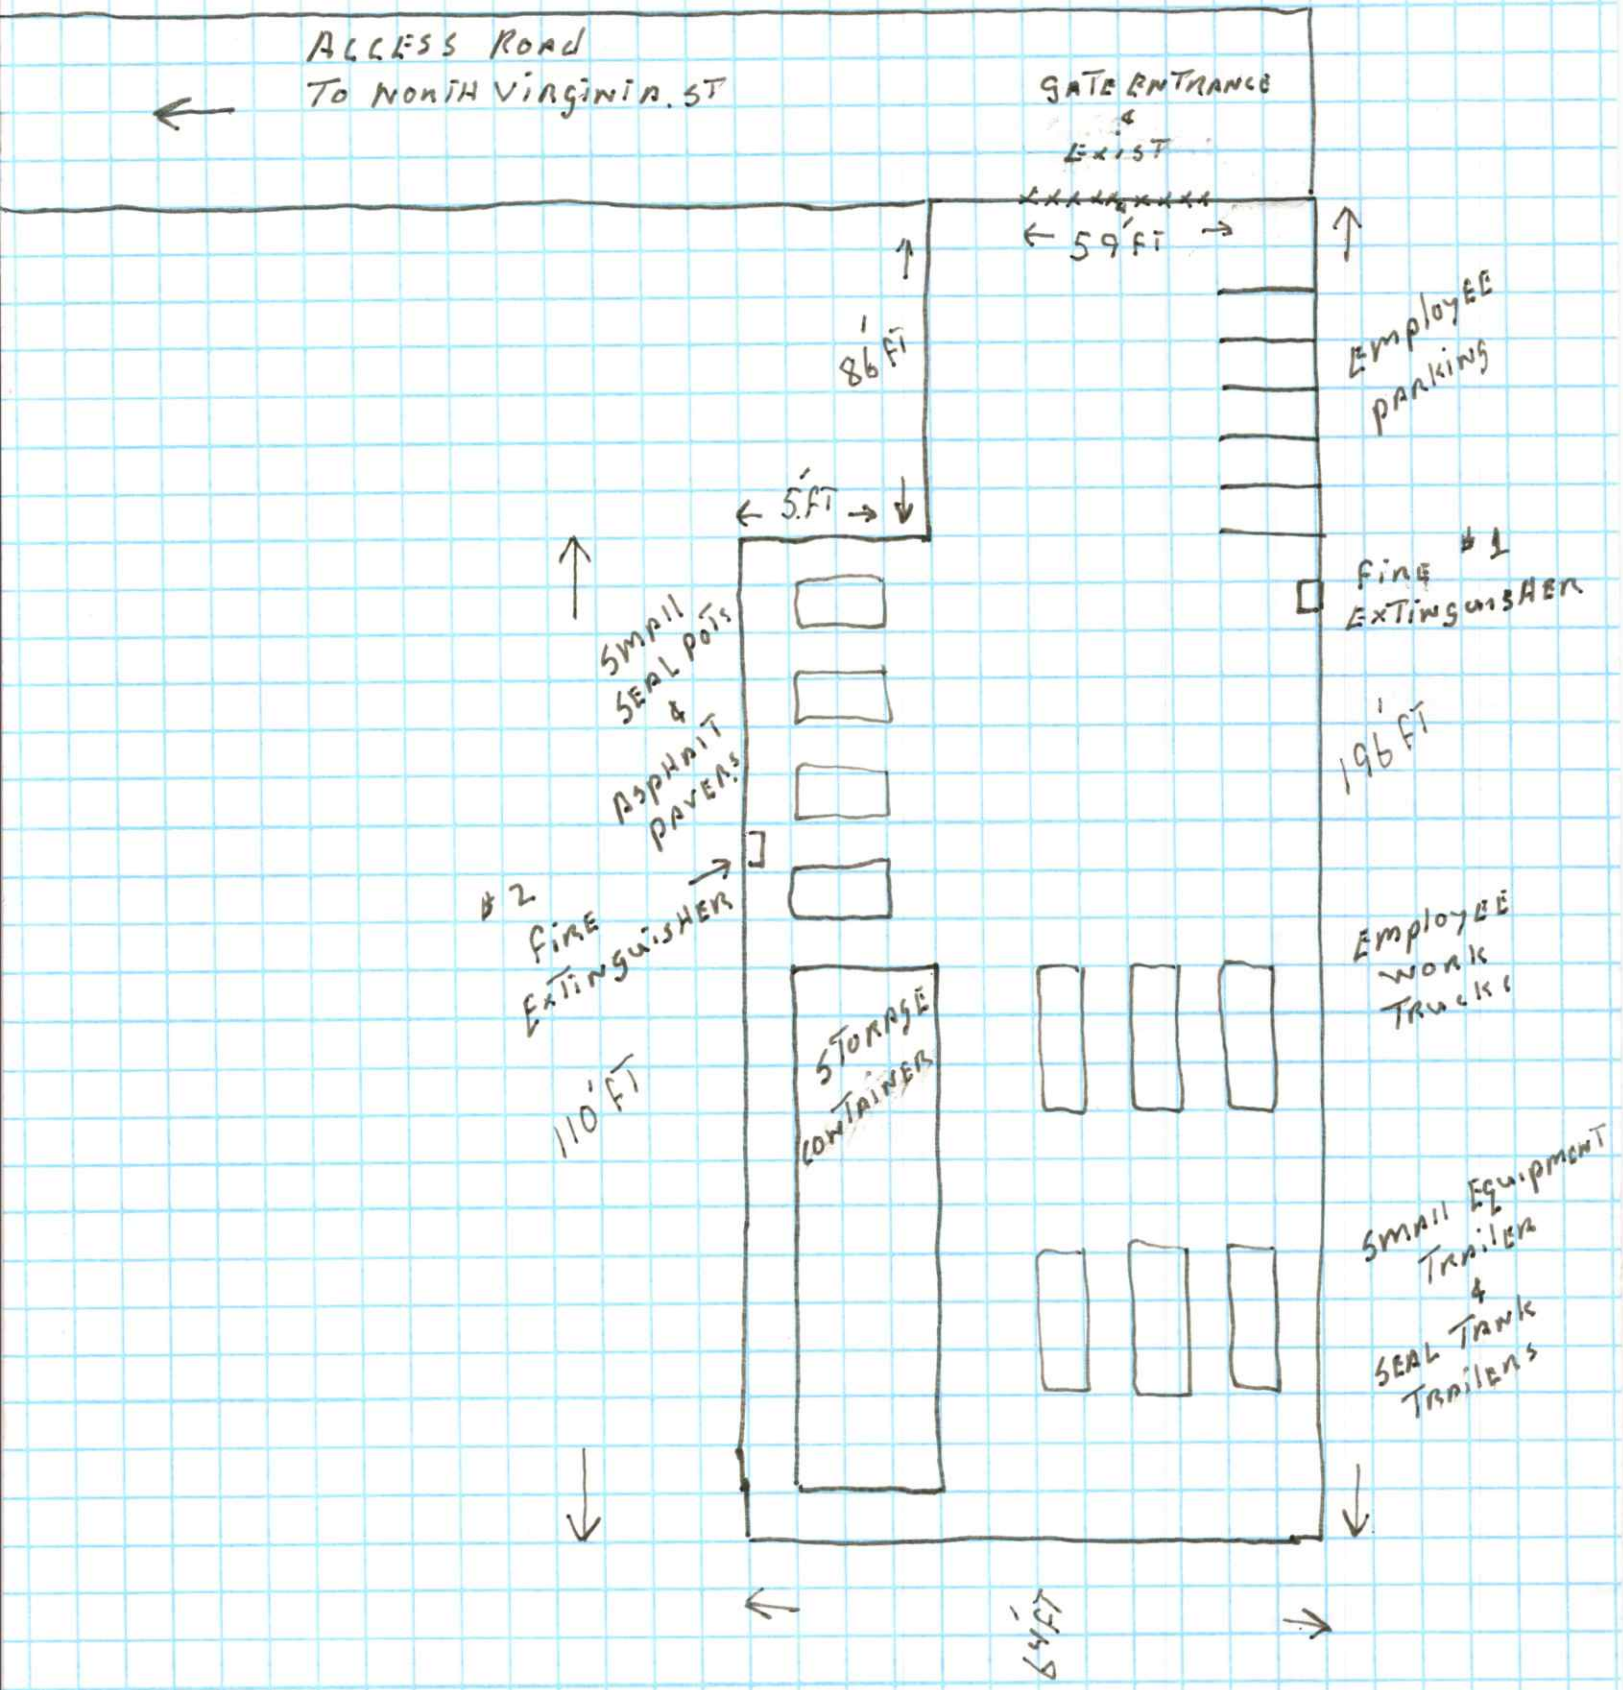 ACCESS ROAD
TO NORTH VIRGINIA. ST
GATE ENTRANCE
&
EXIST
59' FT
86' FT
EMPLOYEE
PARKING
5' FT
#1
FIRE
EXTINGUISHER
SMALL
SEAL POTS
&
ASPHALT
PAVERS
196' FT
#2
FIRE
EXTINGUISHER
EMPLOYEE
WORK
TRUCKS
STORAGE
CONTAINER
110' FT
SMALL EQUIPMENT
TRAILER
&
SEAL TANK
TRAILERS
64' FT